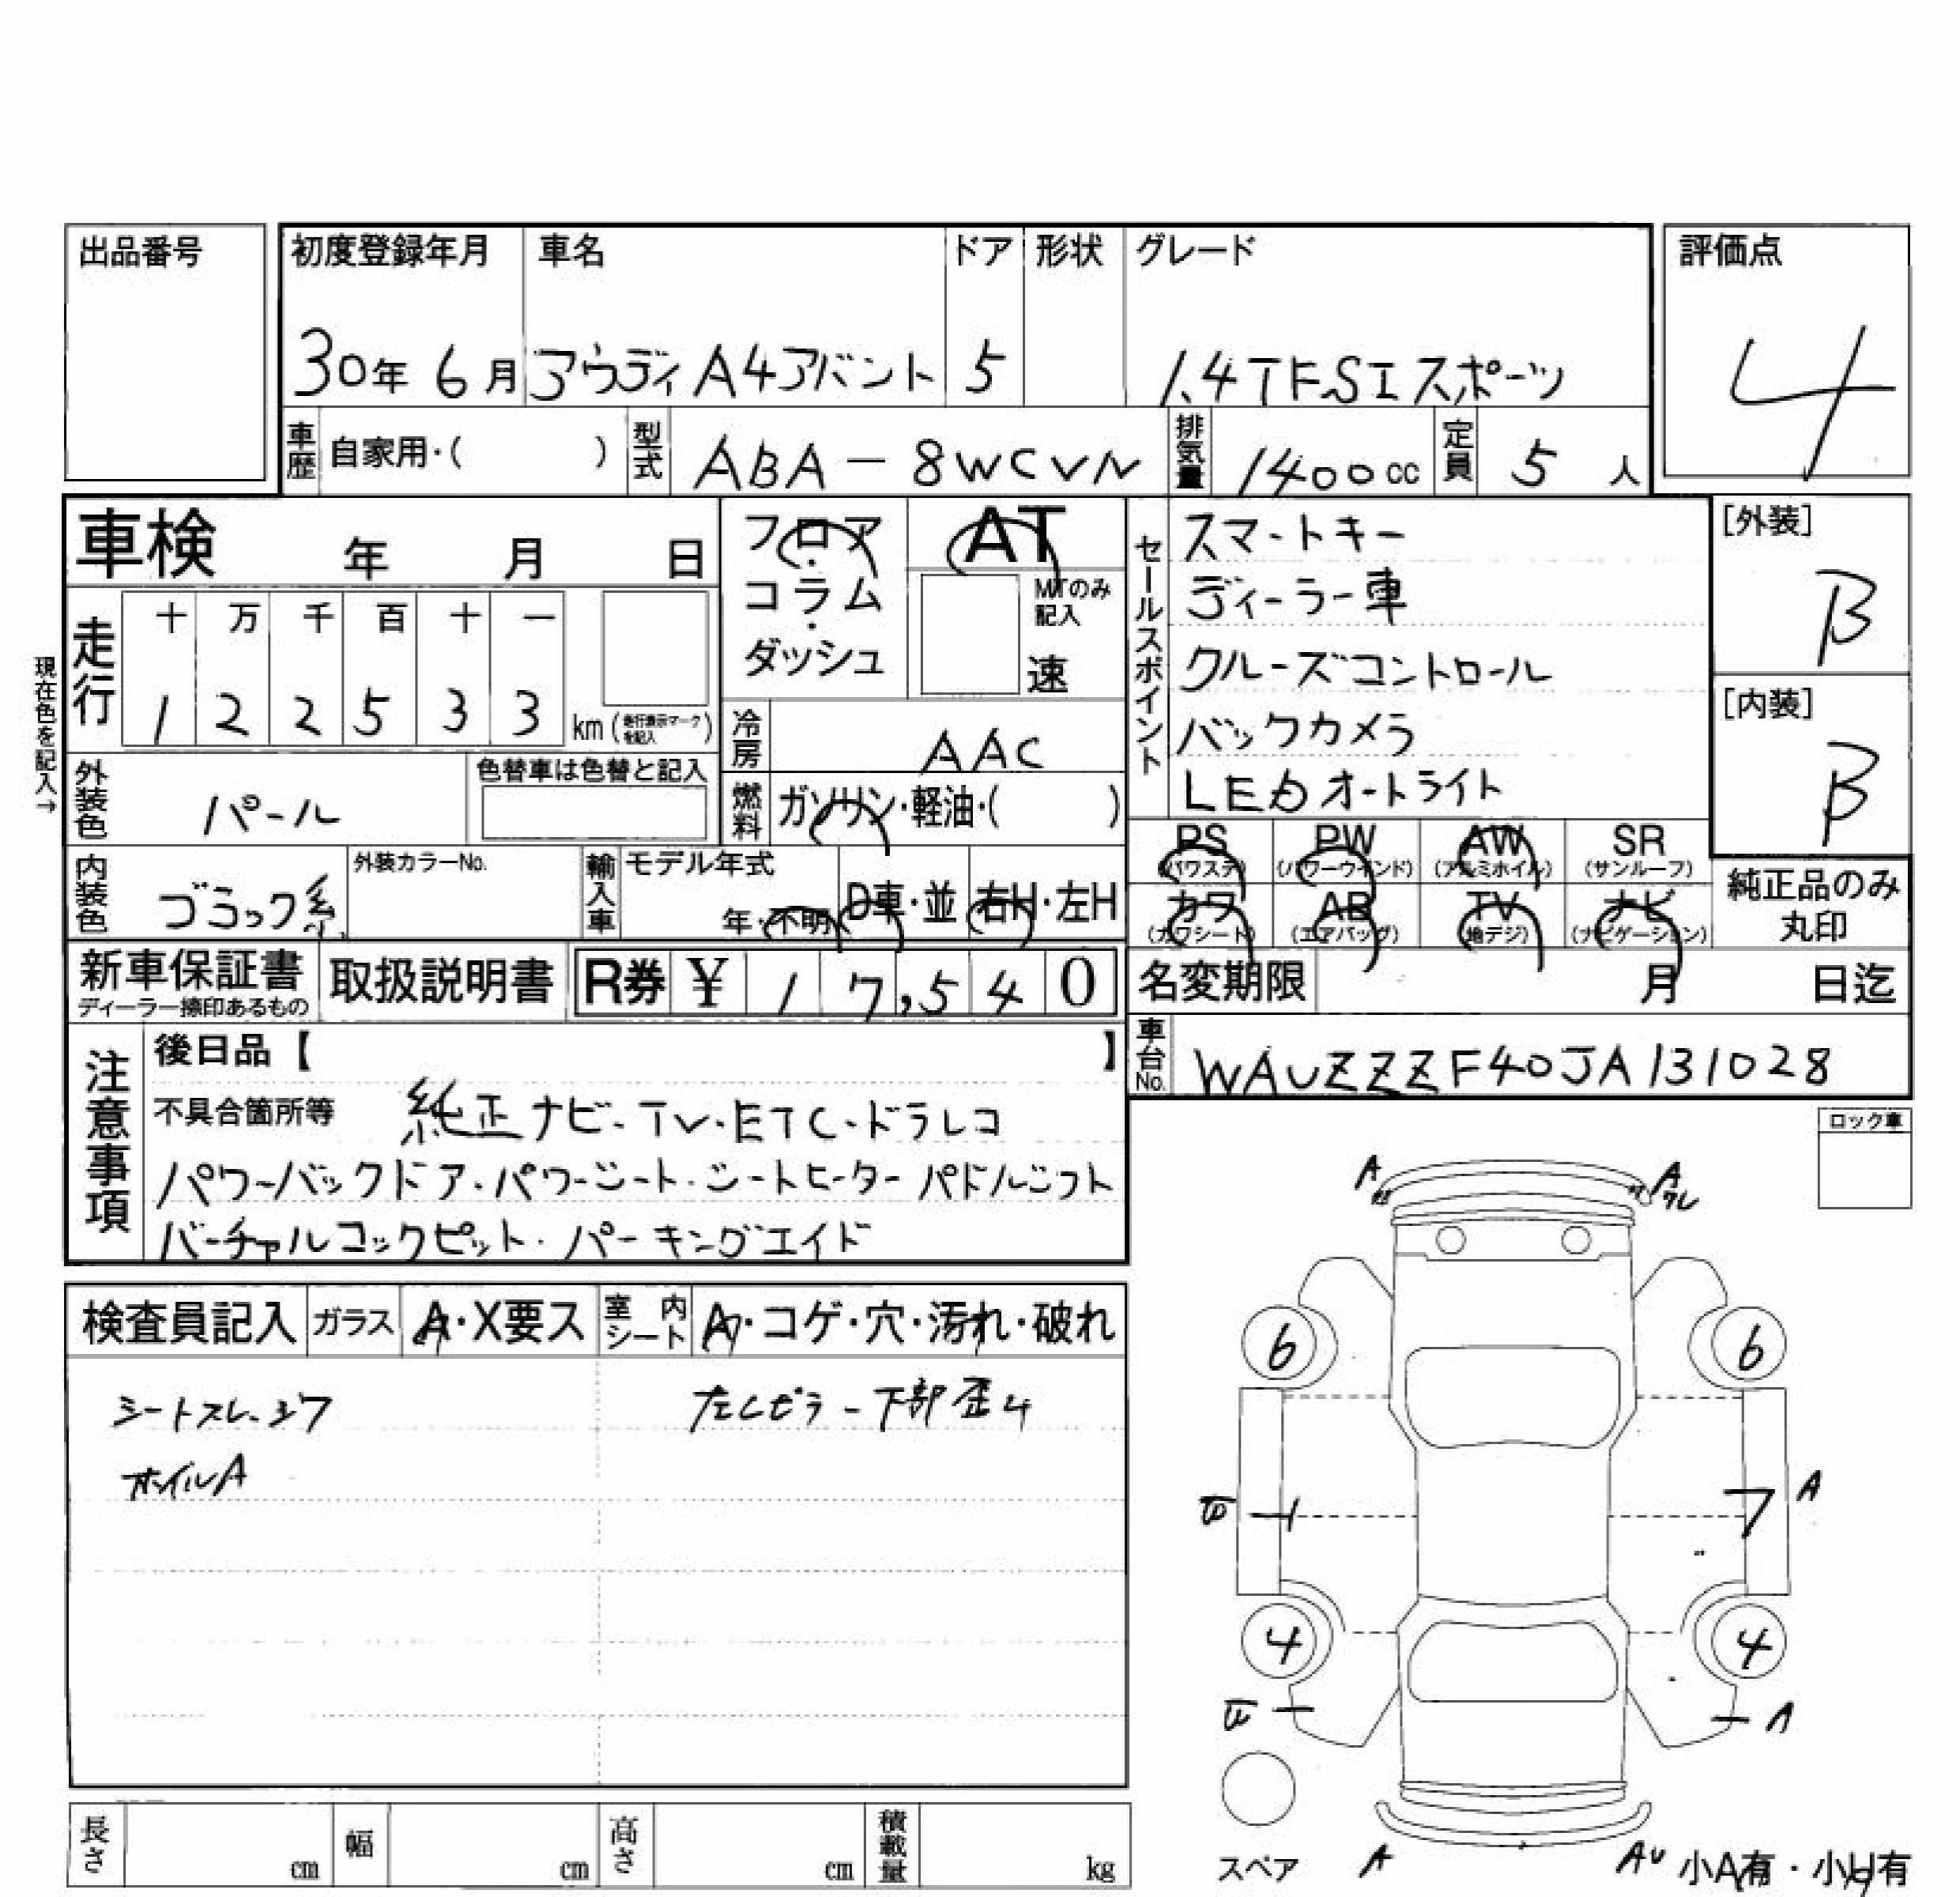 出品番号
初度登録年月 車名 ドア 形状 グレード 評価点
30年 6月 アウディA4アバント 5 1.4TFSIスポーツ 4
車歴 自家用・( ) 型式 ABA-8WCVN 排気量 1400cc 定員 5人
車検 年 月 日
フロア・コラム・ダッシュ
AT
MTのみ記入
速
走行
十 万 千 百 十 一
1 2 2 5 3 3 km (走行表示マークを記入)
現在色を記入→
冷房 AAC
外装色 パール
色替車は色替と記入
燃料 ガソリン・軽油・( )
セールスポイント
スマートキー
ディーラー車
クルーズコントロール
バックカメラ
LEDオートライト
[外装]
B
[内装]
B
内装色 ブラック系
外装カラーNo.
輸入車 モデル年式
年・不明 D車・並 右H・左H
PS (パワステ) PW (パワーウインド) AW (アルミホイル) SR (サンルーフ)
カワ (カワシート) AB (エアバッグ) TV (地デジ) ナビ (ナビゲーション)
純正品のみ丸印
新車保証書
ディーラー捺印あるもの
取扱説明書
R券 ¥ 1 7,5 4 0
名変期限 月 日迄
車台No. WAUZZZF40JA131028
注意事項
後日品【 】
不具合箇所等 純正ナビ・TV・ETC・ドラレコ
パワーバックドア・パワーシート・シートヒーター パドルシフト
バーチャルコックピット・パーキングエイド
ロック車
検査員記入 ガラス A・X要ス 室内シート A・コゲ・穴・汚れ・破れ
シートスレ・シワ
左Cピラー下部歪4
ホイルA
A
A
スレ
6 6
A
4 4
A
スペア
A
AU
小A有・小U有
長さ cm 幅 cm 高さ cm 積載量 kg